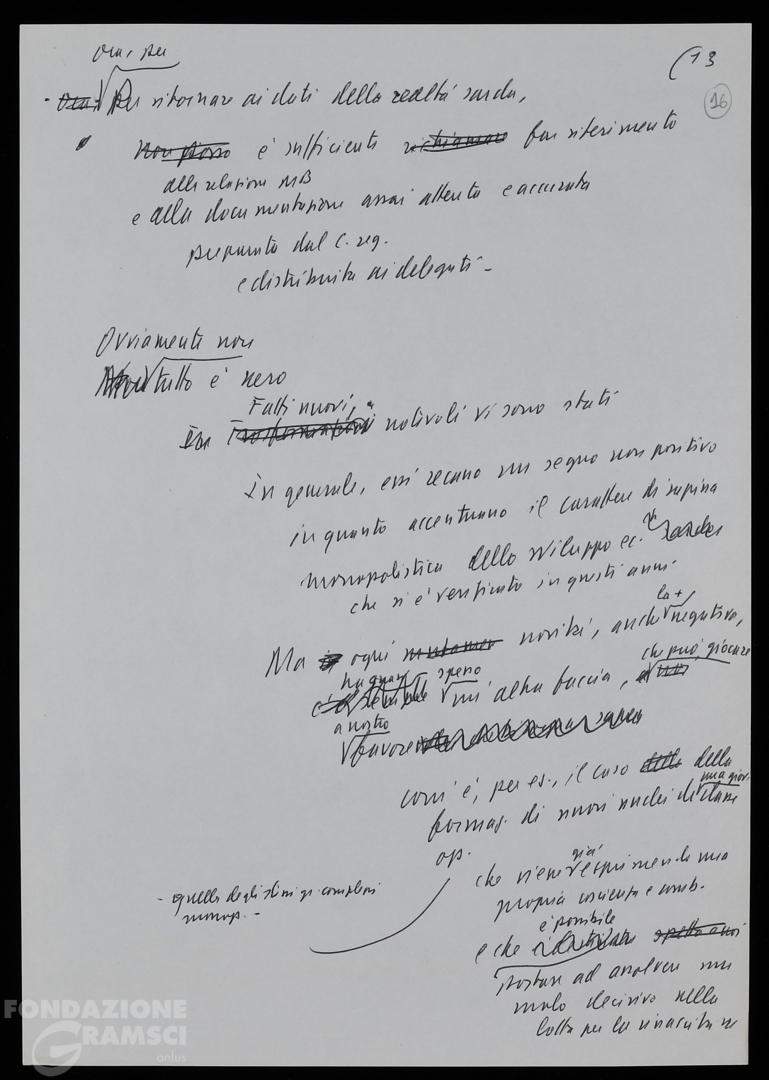 Ora, per
(13
16
- ~~Ora~~ Per ritornare ai dati della realtà sarda,
~~Non posso~~ è sufficiente ~~richiamare~~ far riferimento
alla relazione MB
e alla documentazione assai attenta e accurata
preparata dal C. reg.
e distribuita ai delegati -
Ovviamente non
tutto è nero
Fatti nuovi,
~~Trasformazioni~~ notevoli vi sono stati
In generale, essi recano un segno non positivo
in quanto accentuano il carattere di rapina
monopolistica dello sviluppo ec.
che si è verificato in questi anni
la +
Ma ogni ~~mutamen~~ novità, anche negativa,
ha spesso che può giocare
un'altra faccia,
a nostro
favore
com'è, per es., il caso ~~della~~ della
una giov.
formaz. di nuovi nuclei di classe
op.
già
che viene esprimendo una
- quella degli stessi gr. complessi
monop. -
propria coscienza e comb.
è possibile
e che ~~spetta a noi~~
portare ad assolvere un
ruolo decisivo nella
lotta per la rinascita
FONDAZIONE
GRAMSCI
onlus